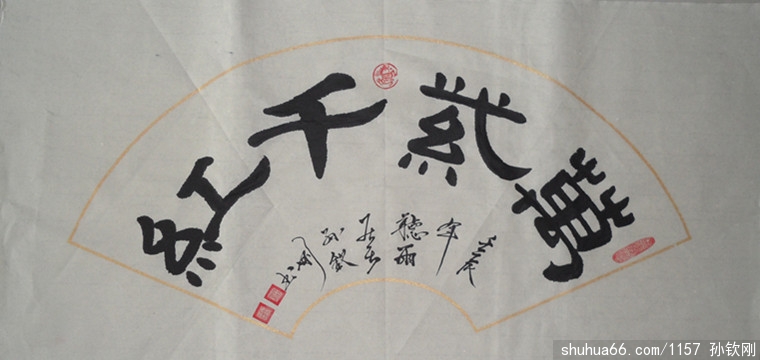 萬紫千紅
壬辰
年
聽雨
孫欽
剛
shuhua66.com/1157 孙钦刚